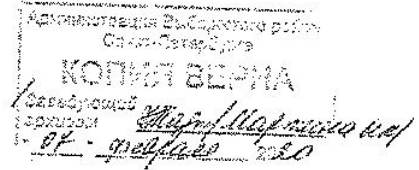 Администрация Выборгского района
Санкт-Петербурга
КОПИЯ ВЕРНА
Заведующий
архивом
07 февраля 2020